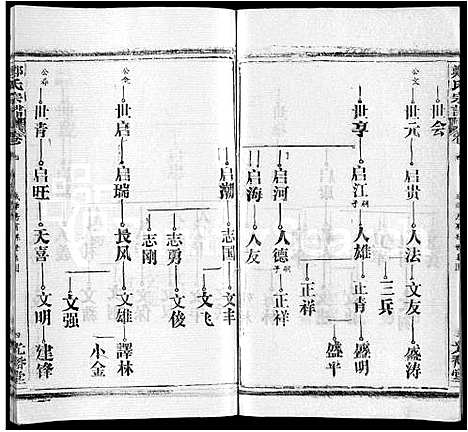 鄭氏宗譜 卷
世会
公文
世元 启貴 人法 文友 盛涛
三兵
世享 启江 人雄 正青 盛明
盛平
启河 人德 正祥
正祥
启海 人友
启潮 志国 文丰
文飞
志勇 文俊
志刚
公全
世启 启瑞 良风 文雄 譯林
小金
公寿
世青 启旺 天喜 文明 建锋
文强
鄭氏宗譜 卷